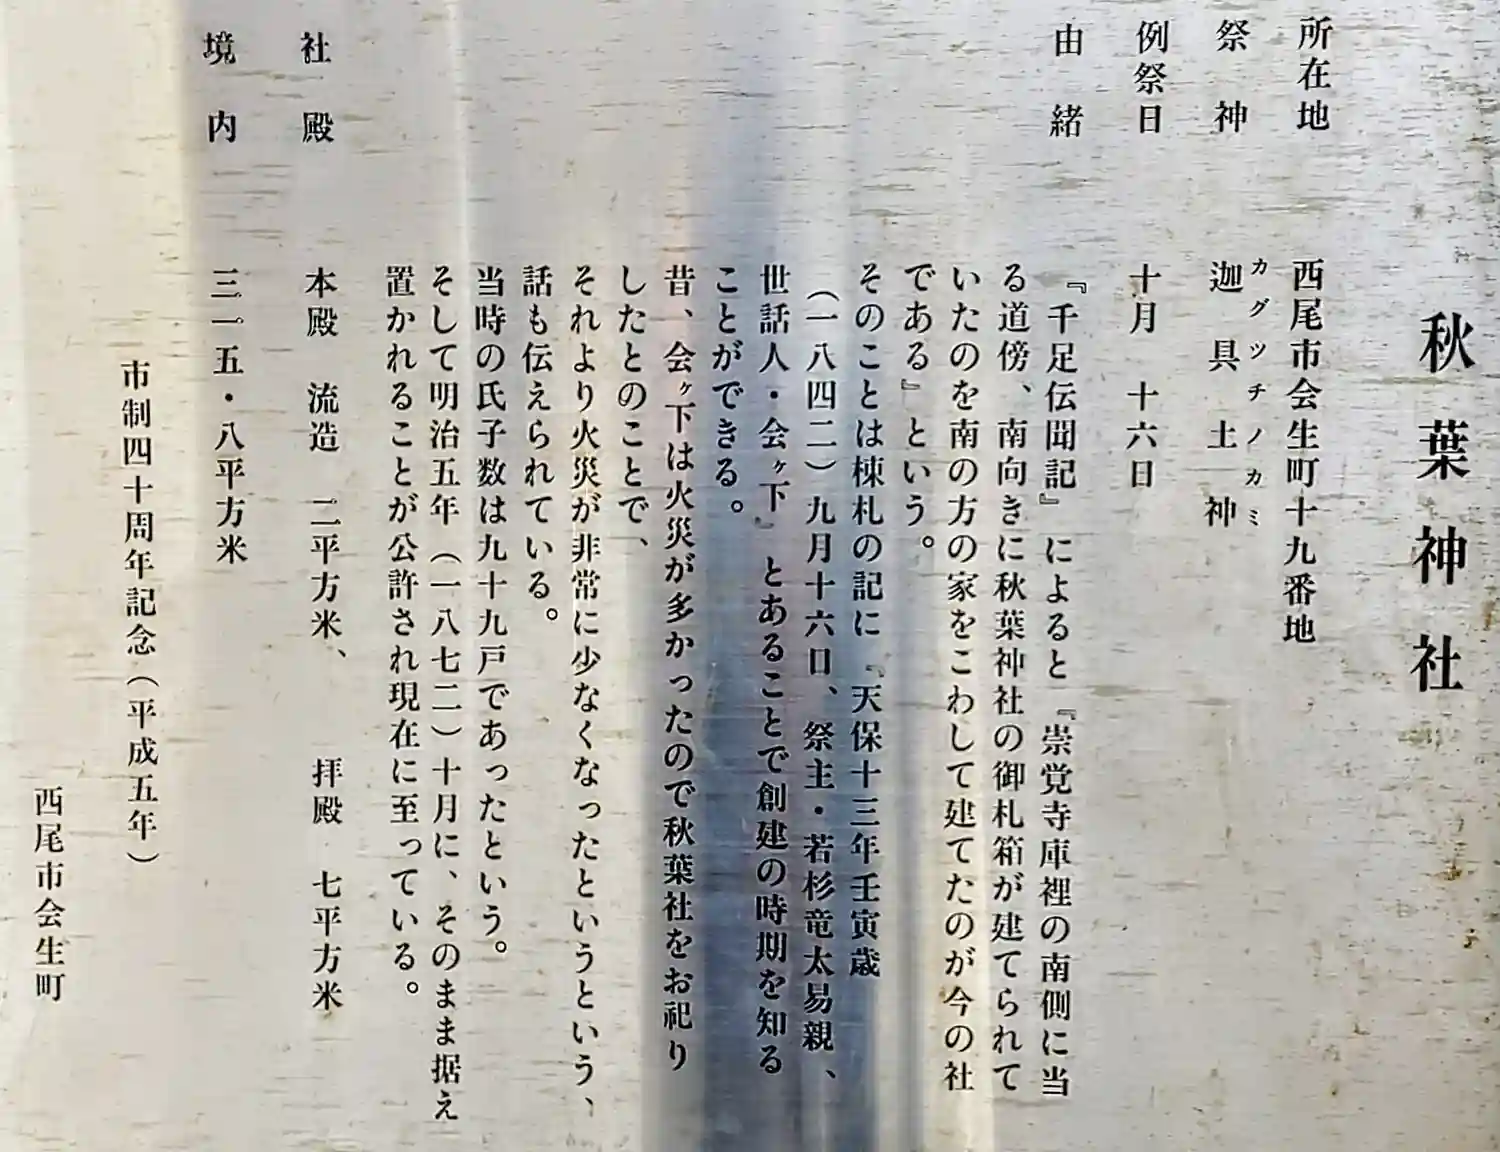 秋葉神社
所在地 西尾市会生町十九番地
祭神 迦具土神
カグツチノカミ
例祭日 十月 十六日
由緒 『千足伝聞記』によると『崇覚寺庫裡の南側に当
る道傍、南向きに秋葉神社の御札箱が建てられて
いたのを南の方の家をこわして建てたのが今の社
である』という。
そのことは棟札の記に『天保十三年壬寅歳
(一八四二)九月十六日、祭主・若杉竜太易親、
世話人・会ヶ下』とあることで創建の時期を知る
ことができる。
昔、会ヶ下は火災が多かったので秋葉社をお祀り
したとのことで、
それより火災が非常に少なくなったというという、
話も伝えられている。
当時の氏子数は九十九戸であったという。
そして明治五年(一八七二)十月に、そのまま据え
置かれることが公許され現在に至っている。
社殿 本殿 流造 二平方米、 拝殿 七平方米
境内 三一五・八平方米
市制四十周年記念(平成五年)
西尾市会生町